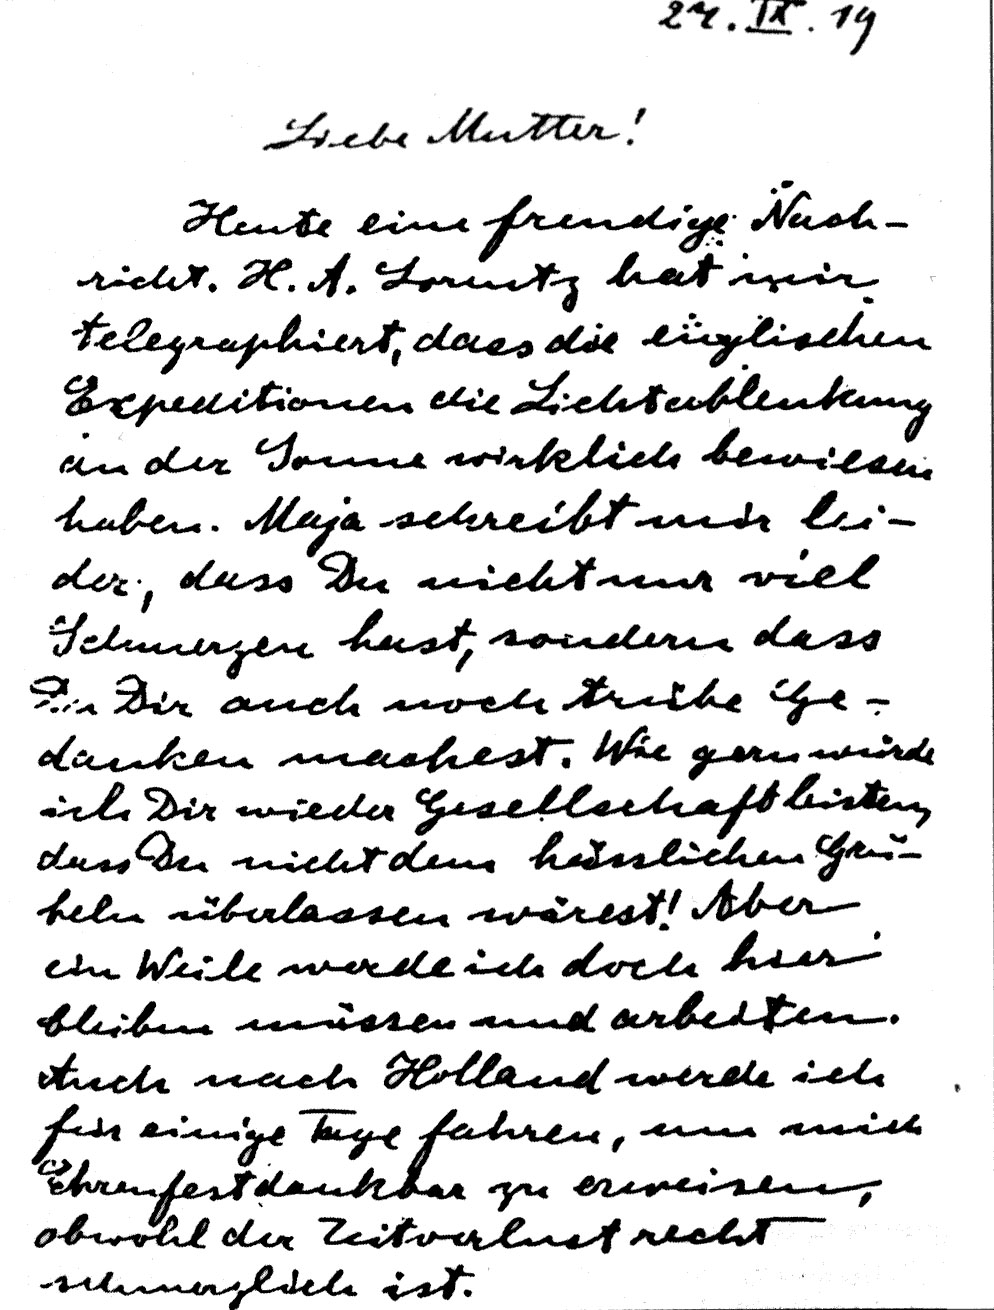 27. IX. 19
Liebe Mutter!
Heute eine freudige Nach-
richt. H. A. Lorentz hat mir
telegraphiert, dass die englischen
Expeditionen die Lichtablenkung
an der Sonne wirklich bewiesen
haben. Maja schreibt mir lei-
der, dass Du nicht nur viel
Schmerzen hast, sondern dass
Du Dir auch noch trübe Ge-
danken machest. Wie gern würde
ich Dir wieder Gesellschaft leisten,
dass Du nicht dem hässlichen Grü-
beln überlassen wärest! Aber
ein Weile werde ich doch hier
bleiben müssen und arbeiten.
Auch nach Holland werde ich
für einige Tage fahren, um mich
Ehrenfest dankbar zu erweisen,
obwohl der Zeitverlust recht
schmerzlich ist.